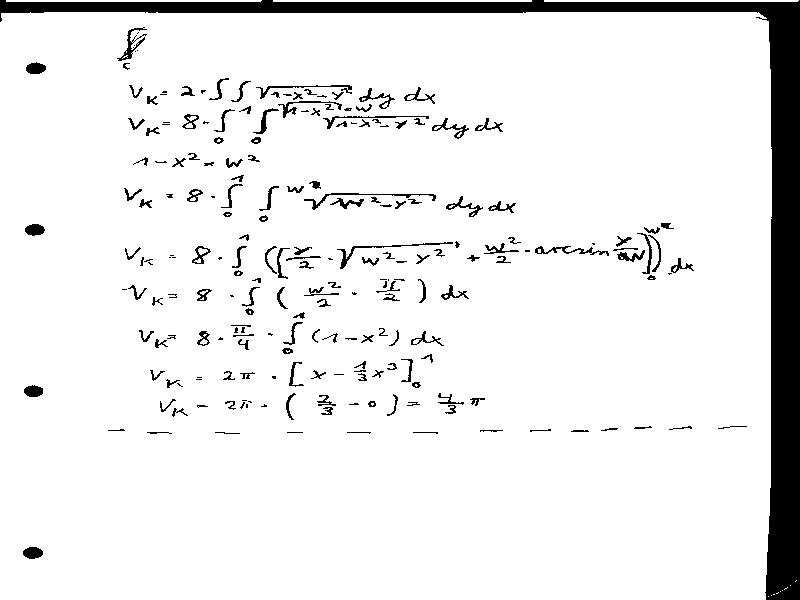 V_K = 2 · ∫∫ √(1-x²-y²) dy dx
V_K = 8 · ∫₀¹ ∫₀^(√(1-x²) = w) √(1-x²-y²) dy dx
1-x² = w²
V_K = 8 · ∫₀¹ ∫₀^w √(w²-y²) dy dx
V_K = 8 · ∫₀¹ ([y/2 · √(w²-y²) + w²/2 · arcsin y/w]₀^w) dx
V_K = 8 · ∫₀¹ (w²/2 · π/2) dx
V_K = 8 · π/4 · ∫₀¹ (1-x²) dx
V_K = 2π · [x - 1/3 x³]₀¹
V_K = 2π · (2/3 - 0) = 4/3 π